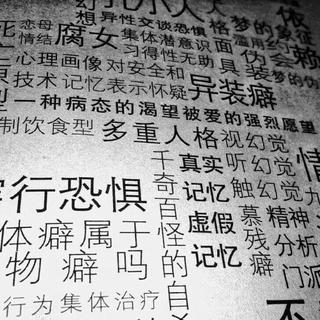 幻
孔小人
大
依
想
异性交谈恐惧
人格
梦的象征
恋母
情结
腐女
集体潜意识
面
伪
赖
习得性无助
具
会
心理画像
对安全和
异装癖
装
梦的伪
技术
记忆表示怀疑
一种病态的渴望被爱的强烈愿望
制饮食型
多重人格
视幻觉
千奇百怪的自杀
真实记忆
虚假记忆
听幻觉
触幻觉
慕残癖
情
精神分析
门派
行恐惧
体癖属于
物癖吗
行为
集体治疗
不